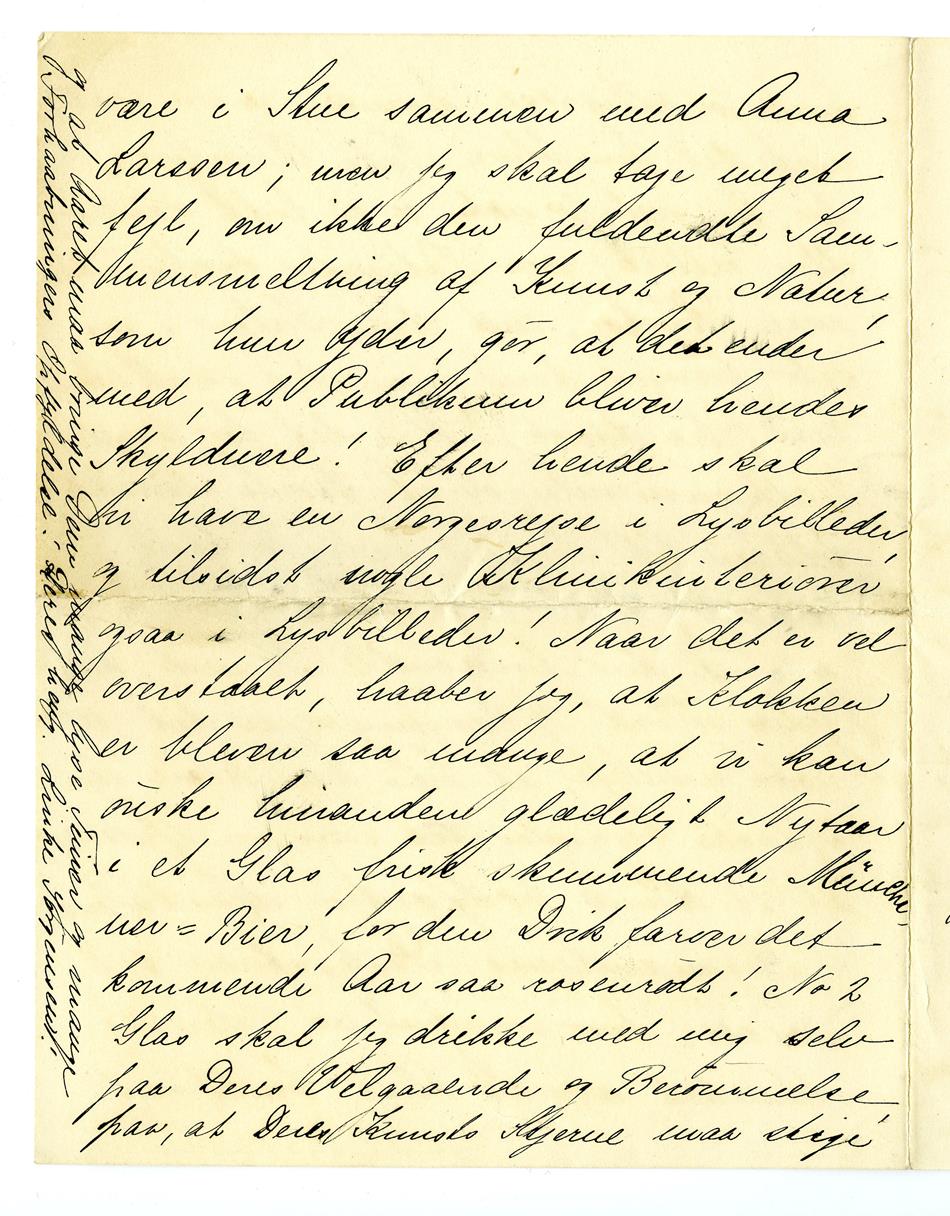 være i Stue sammen med Anna
Larssen; men jeg skal tage meget
fejl, om ikke den fuldendte Sam-
mensmeltning af Kunst og Natur,
som hun yder, gör, at det ender
med, at Publikum bliver hendes
Skyldnere! Efter hende skal
vi have en Norgesrejse i Lysbilleder,
og tilsidst nogle Klinikinteriörer
ogsaa i Lysbilleder! Naar det er vel
overstaaet, haaber jeg, at Klokken
er bleven saa mange, at vi kan
önske hinanden glædeligt Nytaar
i et Glas frisk skummende Münche-
ner=Bier, for den Drik farver det
kommende Aar saa rosenrödt! No 2
Glas skal jeg drikke med mig selv
paa Deres Velgaaende og Berömmelse,
paa, at Deres Kunsts Stjerne maa stige
og at Aaret maa bringe Dem mange lyse Timer og mange
Forhaabningers Opfyldelse! Deres heng. Linke Jörgensen!